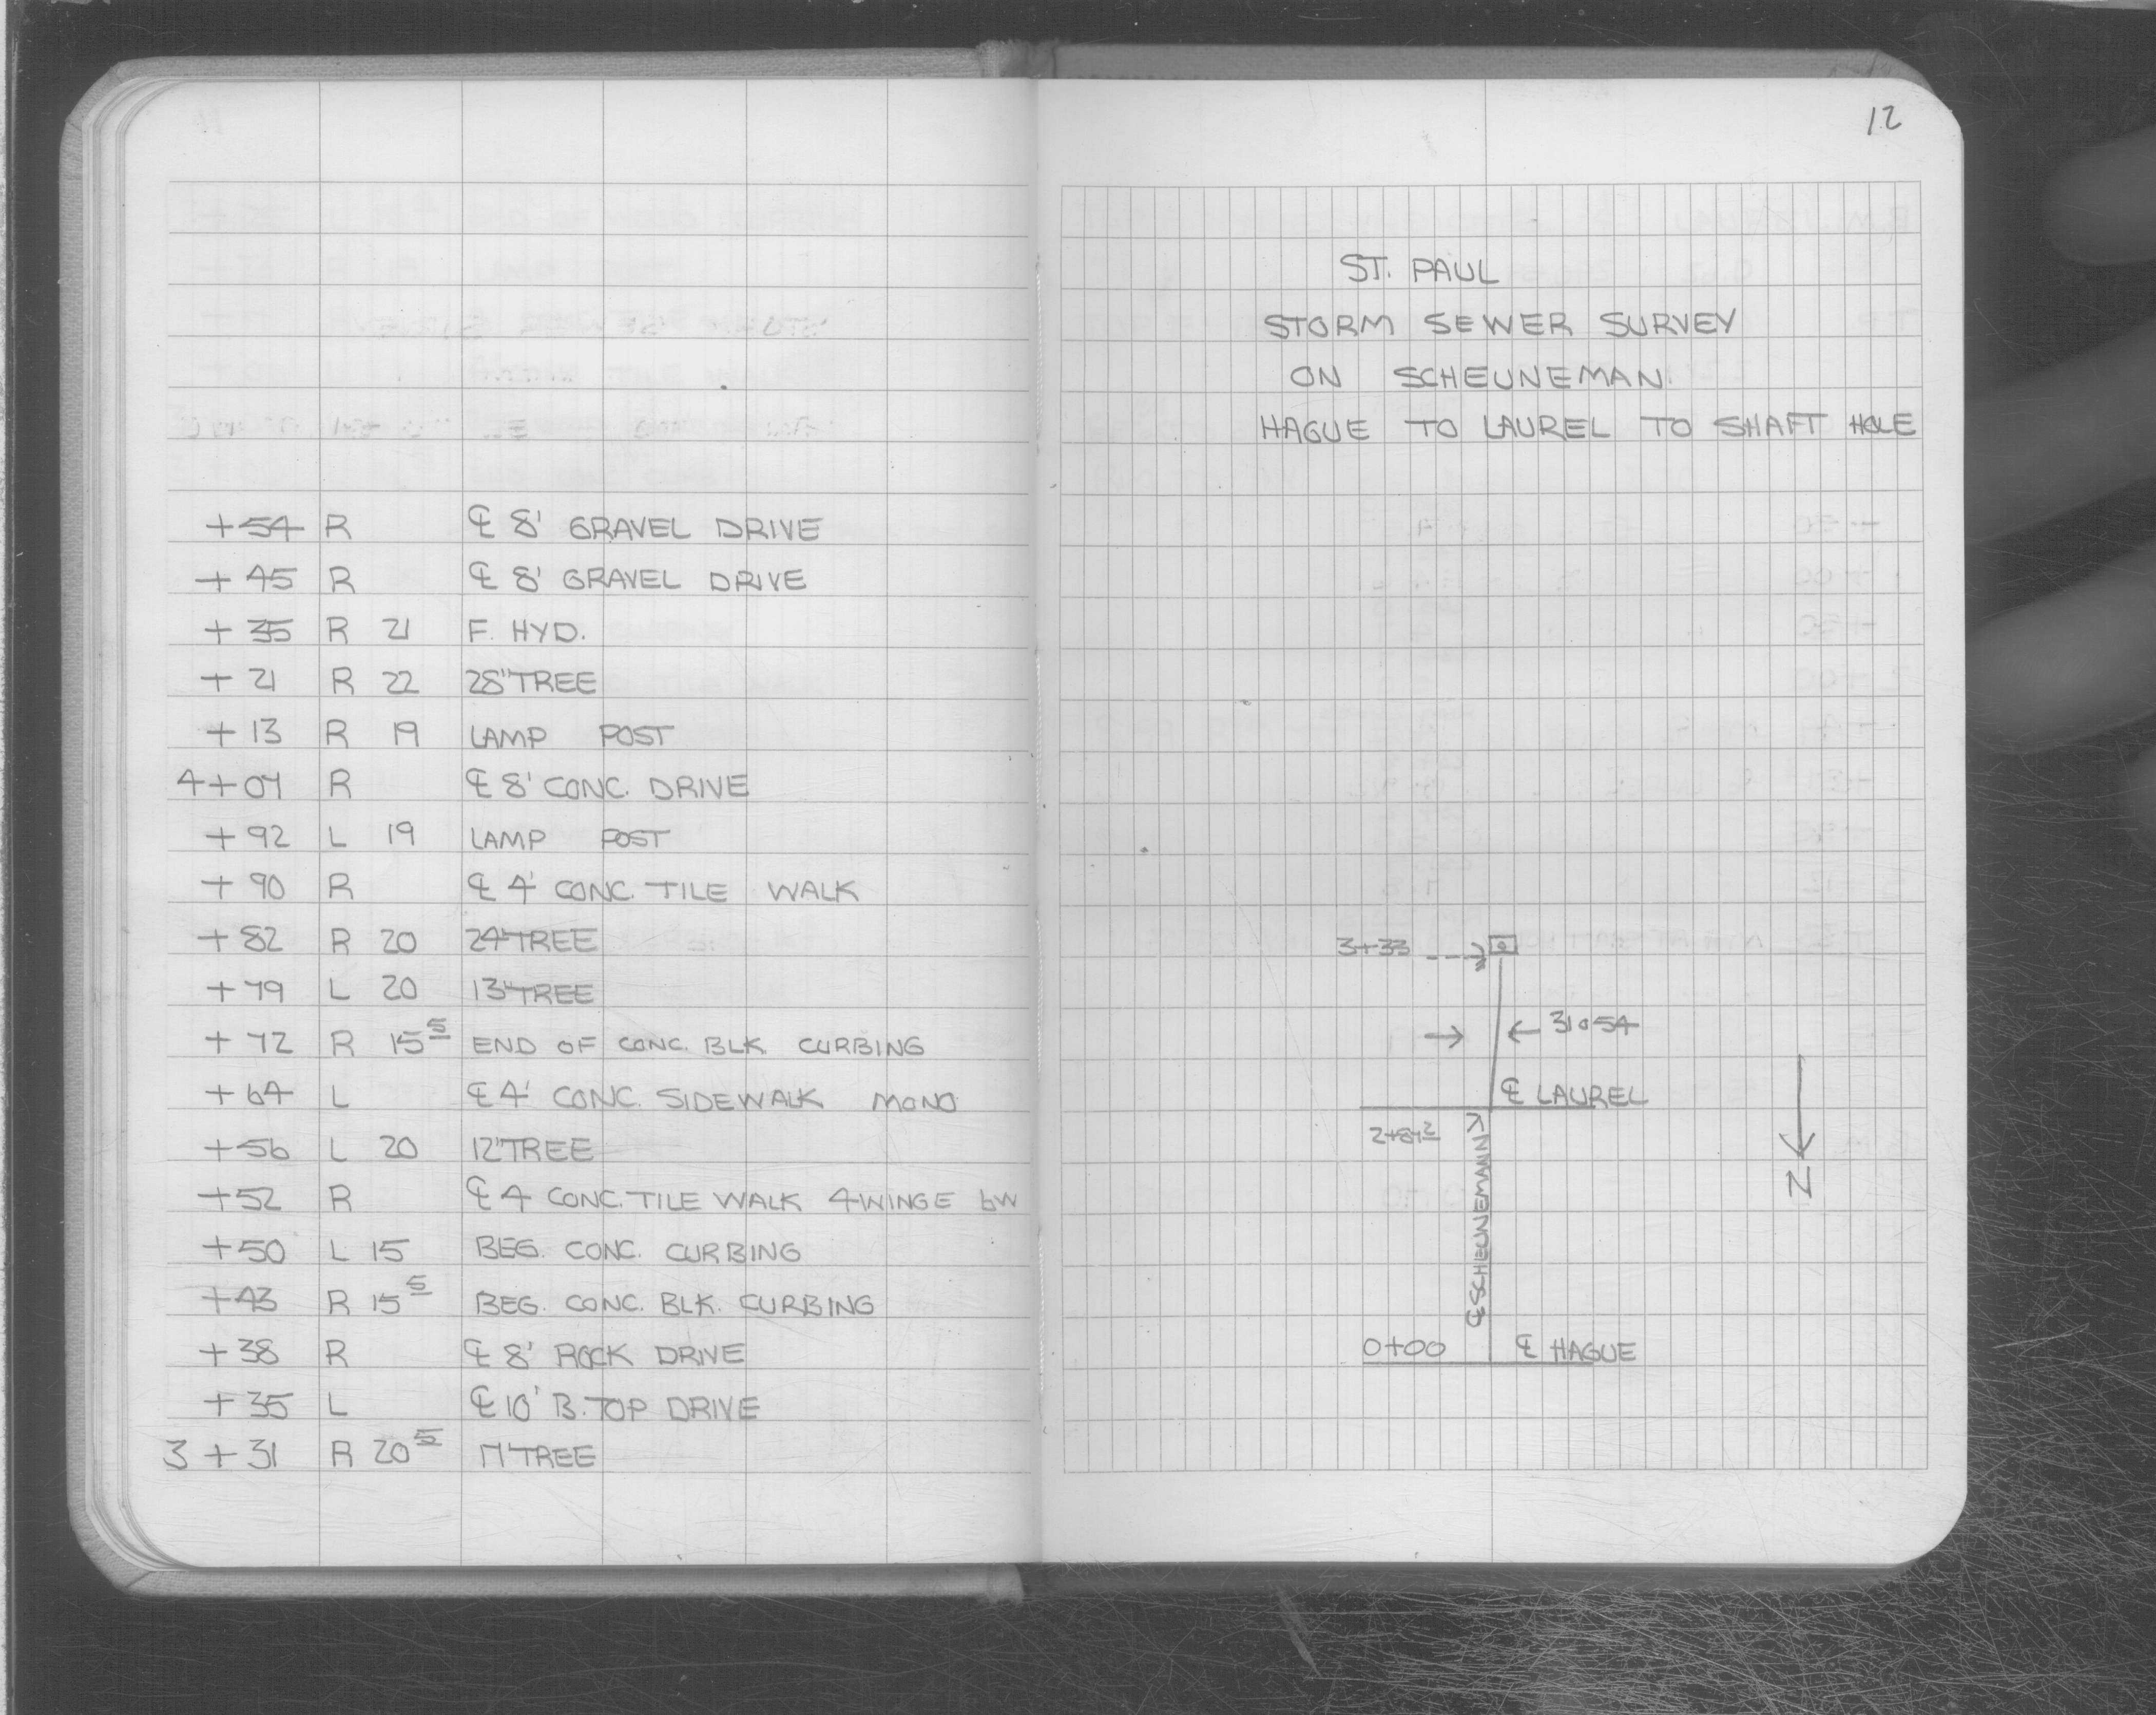 +54 R ℄ 8' GRAVEL DRIVE
+45 R ℄ 8' GRAVEL DRIVE
+35 R 21 F. HYD.
+21 R 22 28" TREE
+13 R 19 LAMP POST
4+07 R ℄ 8' CONC. DRIVE
+92 L 19 LAMP POST
+90 R ℄ 4' CONC. TILE WALK
+82 R 20 24" TREE
+79 L 20 13" TREE
+72 R 15⁵ END OF CONC. BLK. CURBING
+64 L ℄ 4' CONC. SIDEWALK MONO
+56 L 20 12" TREE
+52 R ℄ 4 CONC. TILE WALK 4 WINGE
+50 L 15 BEG. CONC. CURBING
+43 R 15⁵ BEG. CONC. BLK. CURBING
+38 R ℄ 8' ROCK DRIVE
+35 L ℄ 10' B. TOP DRIVE
3+31 R 20⁵ 17" TREE
12
ST. PAUL
STORM SEWER SURVEY
ON SCHEUNEMAN
HAGUE TO LAUREL TO SHAFT HOLE
3+33
℄ LAUREL
2+87²
℄ SCHEUNEMANN
N
0+00 ℄ HAGUE